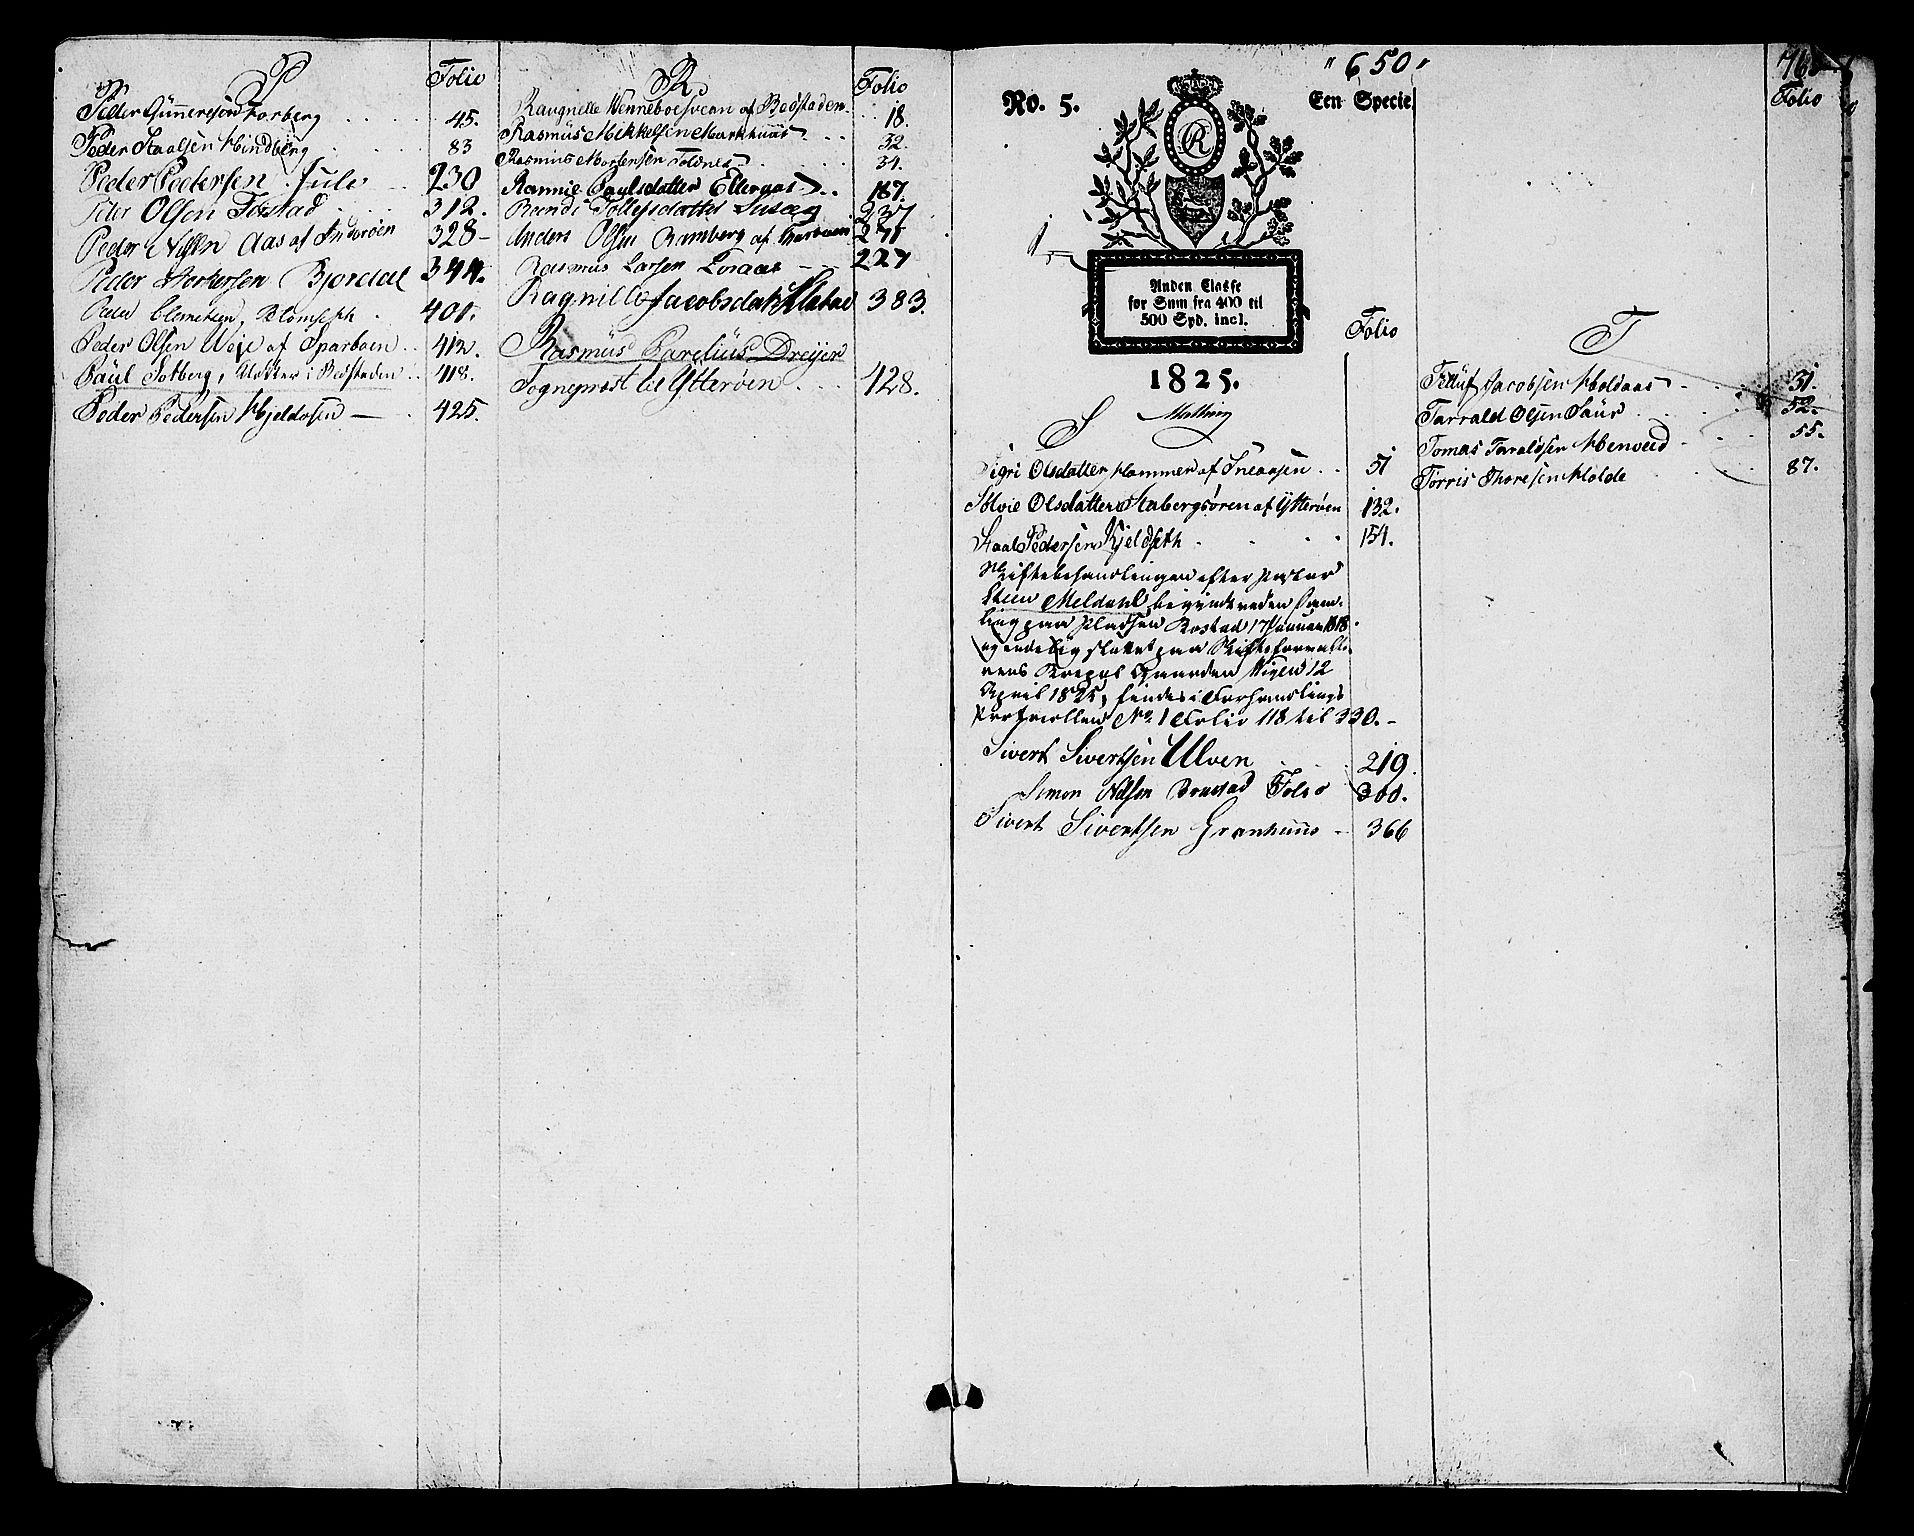 P
Folio
Peder Gunnersen Forberg 45.
Peder Staalsen Hindberg 83
Peder Pedersen Jule 230
Peder Olsen Fostad 312.
Peder Nilsen Aas af Inderøen 328
Peder Storkersen Bjerdal 344.
Peder Clemetsen Blomseth 401.
Peder Olsen Weje af Sparboen 412.
Paul Solberg, Klokker i Bedstaden 418.
Peder Pedersen Hjeldosen 425.
R
Folio
Raugnille Wenneboesveen af Bedstaden 18.
Rasmus Mikkelsen Markhuus 32.
Rasmus Mortensen Foldnes 34.
Rannie Paulsdatter Ellergaas 187.
Randi Tollefsdatter Susaeg 237
Anders Olsen Ramberg af Sparboen 271
Rasmus Larsen Loraas 227
Ragnille Jacobsdatter Alstad 383.
Rasmus Parelius Dreyer
Sogneprest til Ytterøen 428.
"650"
No. 5.
Een Specie
R
Anden Classe
for Sum fra 400 til
500 Spd. incl.
1825.
Folio
S
Sigri Olsdatter Hammer af Sneaasen 51
Solvie Olsdatter Stabergsøren af Ytterøen 132.
Staal Pedersen Kjeldseth 154.
Skiftebehandlingen efter Pastor
Steen Meldahl begyndt ved en Sam-
ling paa Pladsen Rostad 17 Januar 1818
og endelig sluttet paa Skifteforvalte-
rens Gaarden Wigen 12
April 1825, findes i Forhandlings
Protocollen No 1 Folio 118 til 220.
Sivert Sivertsen Ulven 219.
Simon Nilsen Brustad Folio 300.
Sivert Sivertsen Granhuus 366
Folio
T
Tølluf Jacobsen Moldaas 31.
Tarrald Olsen Saur 52.
Tomas Taraldsen Henveed 55.
Torris Thoresen Molde 87.